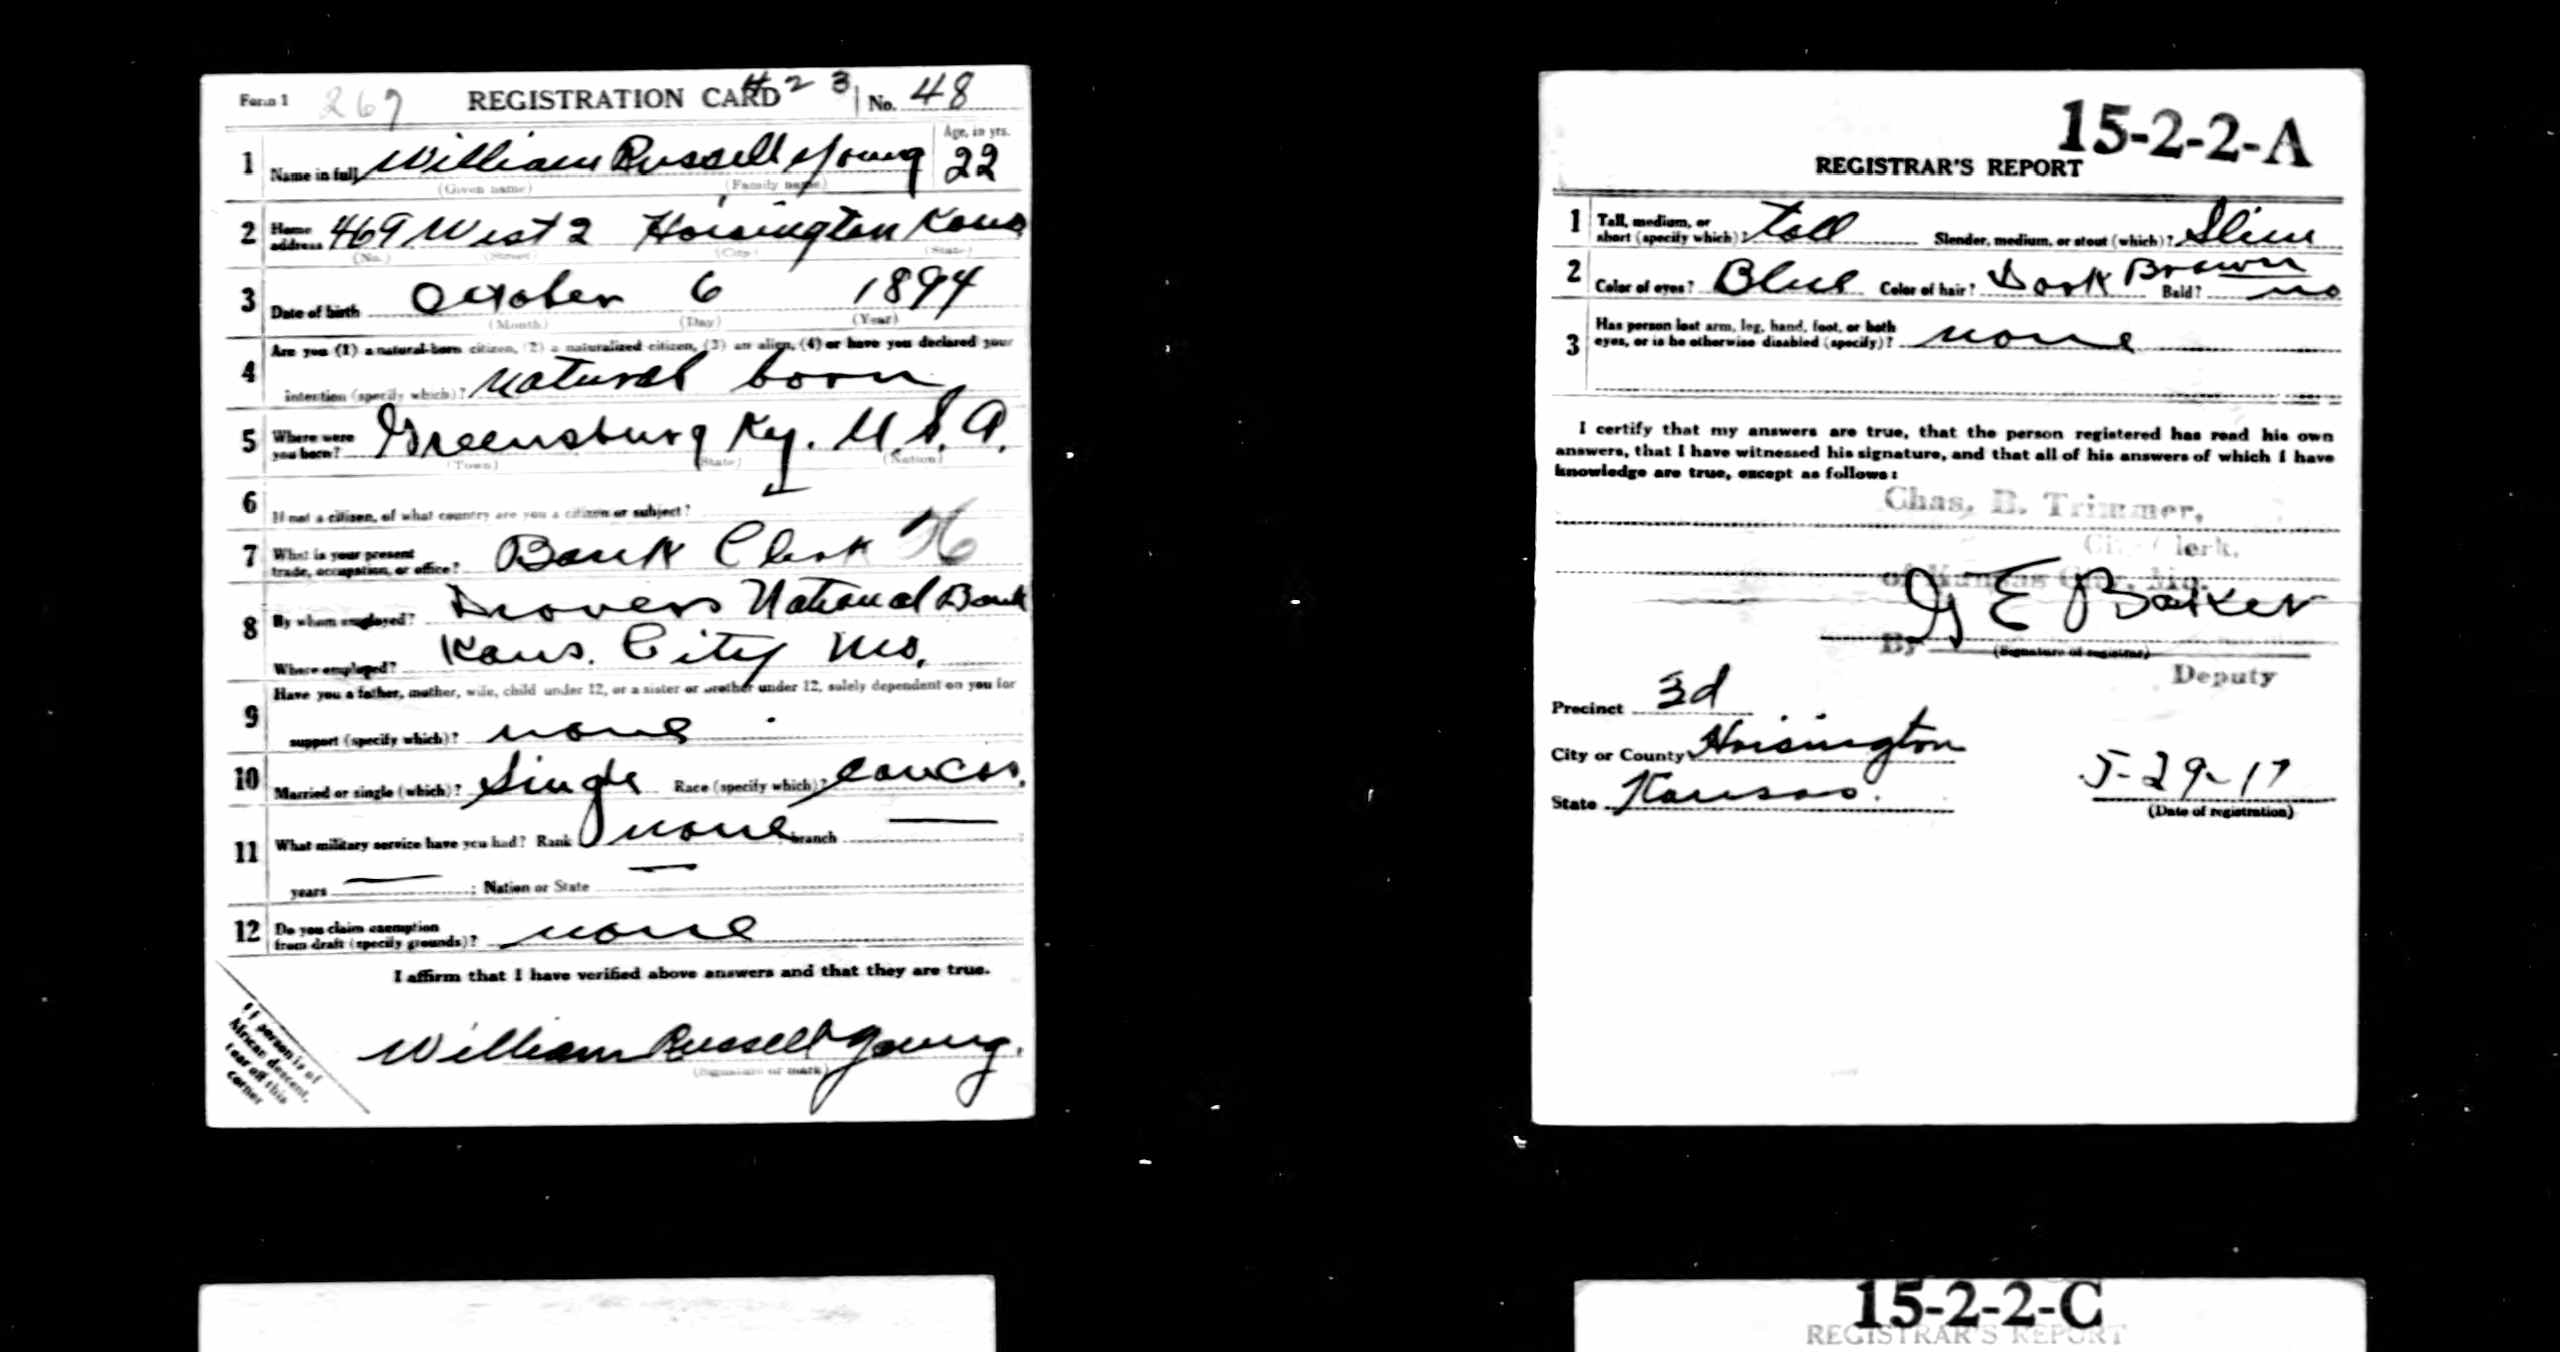 Form 1 267 REGISTRATION CARD 423 No. 48
1 Name in full William Russell Young Age, in yrs. 22
(Given name) (Family name)
2 Home address 469 West 2 Hoisington Kans
(No.) (Street) (City) (State)
3 Date of birth October 6 1894
(Month) (Day) (Year)
Are you (1) a natural-born citizen, (2) a naturalized citizen, (3) an alien, (4) or have you declared your
4 intention (specify which)? natural born
5 Where were you born? Greensburg Ky. U.S.A.
(Town) (State) (Nation)
6 If not a citizen, of what country are you a citizen or subject?
7 What is your present trade, occupation, or office? Bank Clerk
8 By whom employed? Drovers National Bank
Where employed? Kans. City Mo.
Have you a father, mother, wife, child under 12, or a sister or brother under 12, solely dependent on you for
9 support (specify which)? none
10 Married or single (which)? Single Race (specify which)? Caucas.
11 What military service have you had? Rank none branch
years ; Nation or State
12 Do you claim exemption from draft (specify grounds)? none
I affirm that I have verified above answers and that they are true.
William Russell Young.
(Signature or mark)
If person is of
African descent,
tear off this
corner
15-2-2-A
REGISTRAR'S REPORT
1 Tall, medium, or short (specify which)? tall Slender, medium, or stout (which)? Slim
2 Color of eyes? Blue Color of hair? Dark Brown Bald? no
3 Has person lost arm, leg, hand, foot, or both eyes, or is he otherwise disabled (specify)? none
I certify that my answers are true, that the person registered has read his own
answers, that I have witnessed his signature, and that all of his answers of which I have
knowledge are true, except as follows:
Chas. B. Trimmer,
City Clerk,
of Kansas City, Mo.
G E Barker
By (Signature of registrar)
Deputy
Precinct 3d
City or County Hoisington
State Kansas.
5-29-17
(Date of registration)
15-2-2-C
REGISTRAR'S REPORT